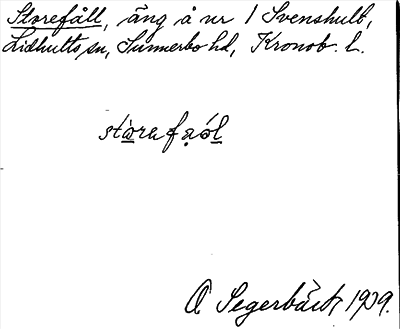 Storefåll, äng å nr 1 Svenshult,
Lidhults sn, Sunnerbo hd, Kronob. L.
stòrafạól
A Segerbäck 1909.